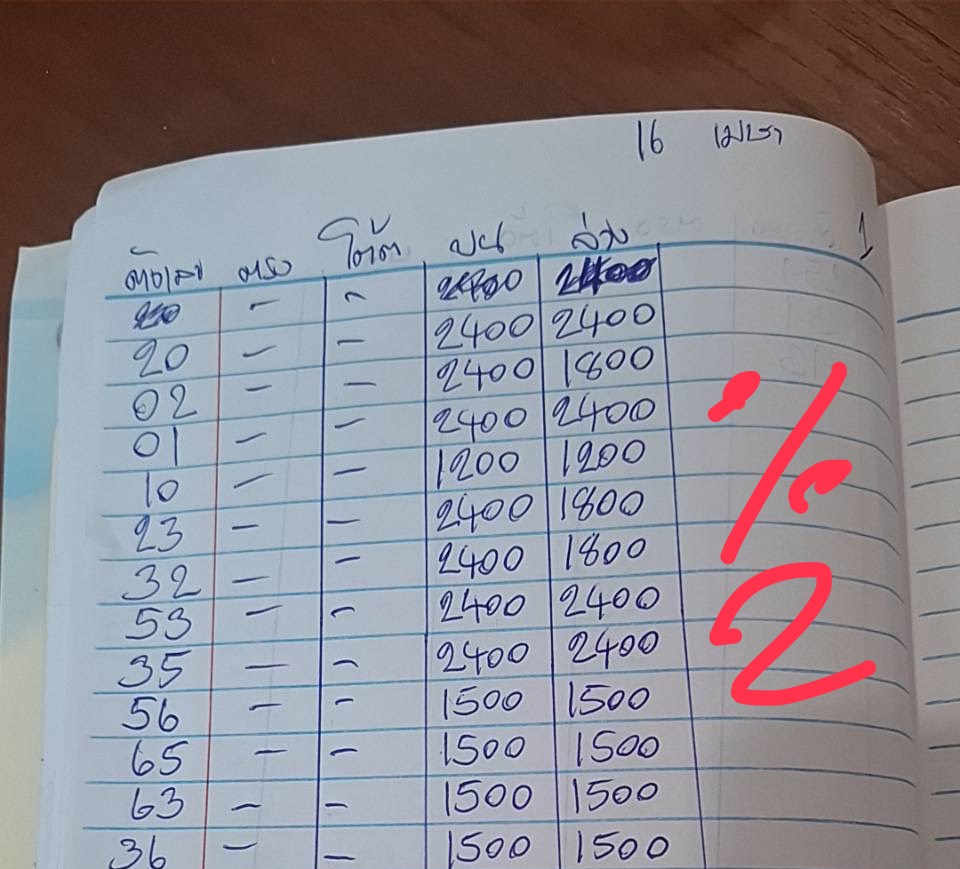 16 เมษา
1
ตัวเลข ตรง โต๊ด บน ล่าง
20 - - 2400 2400
20 - - 2400 2400
02 - - 2400 1800
01 - - 2400 2400
10 - - 1200 1200
23 - - 2400 1800
32 - - 2400 1800
53 - - 2400 2400
35 - - 2400 2400
56 - - 1500 1500
65 - - 1500 1500
63 - - 1500 1500
36 - - 1500 1500
2